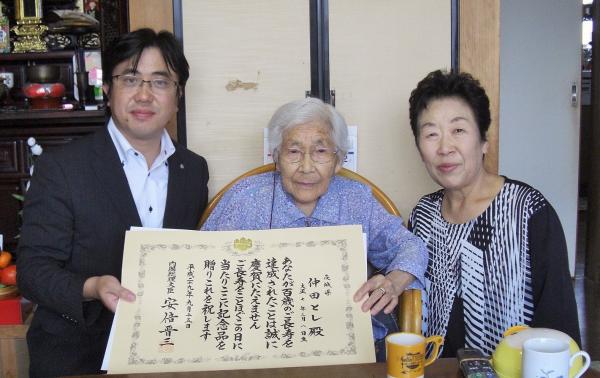 茨城県
仲田とし 殿
大正七年 月八日生
あなたが百歳のご長寿を
達成されたことは誠に
慶賀にたえません
ご長寿をことほぎこの日に
当たりここに記念品を
贈りこれを祝します
平成二十九年九月十五日
内閣総理大臣 安倍晋三